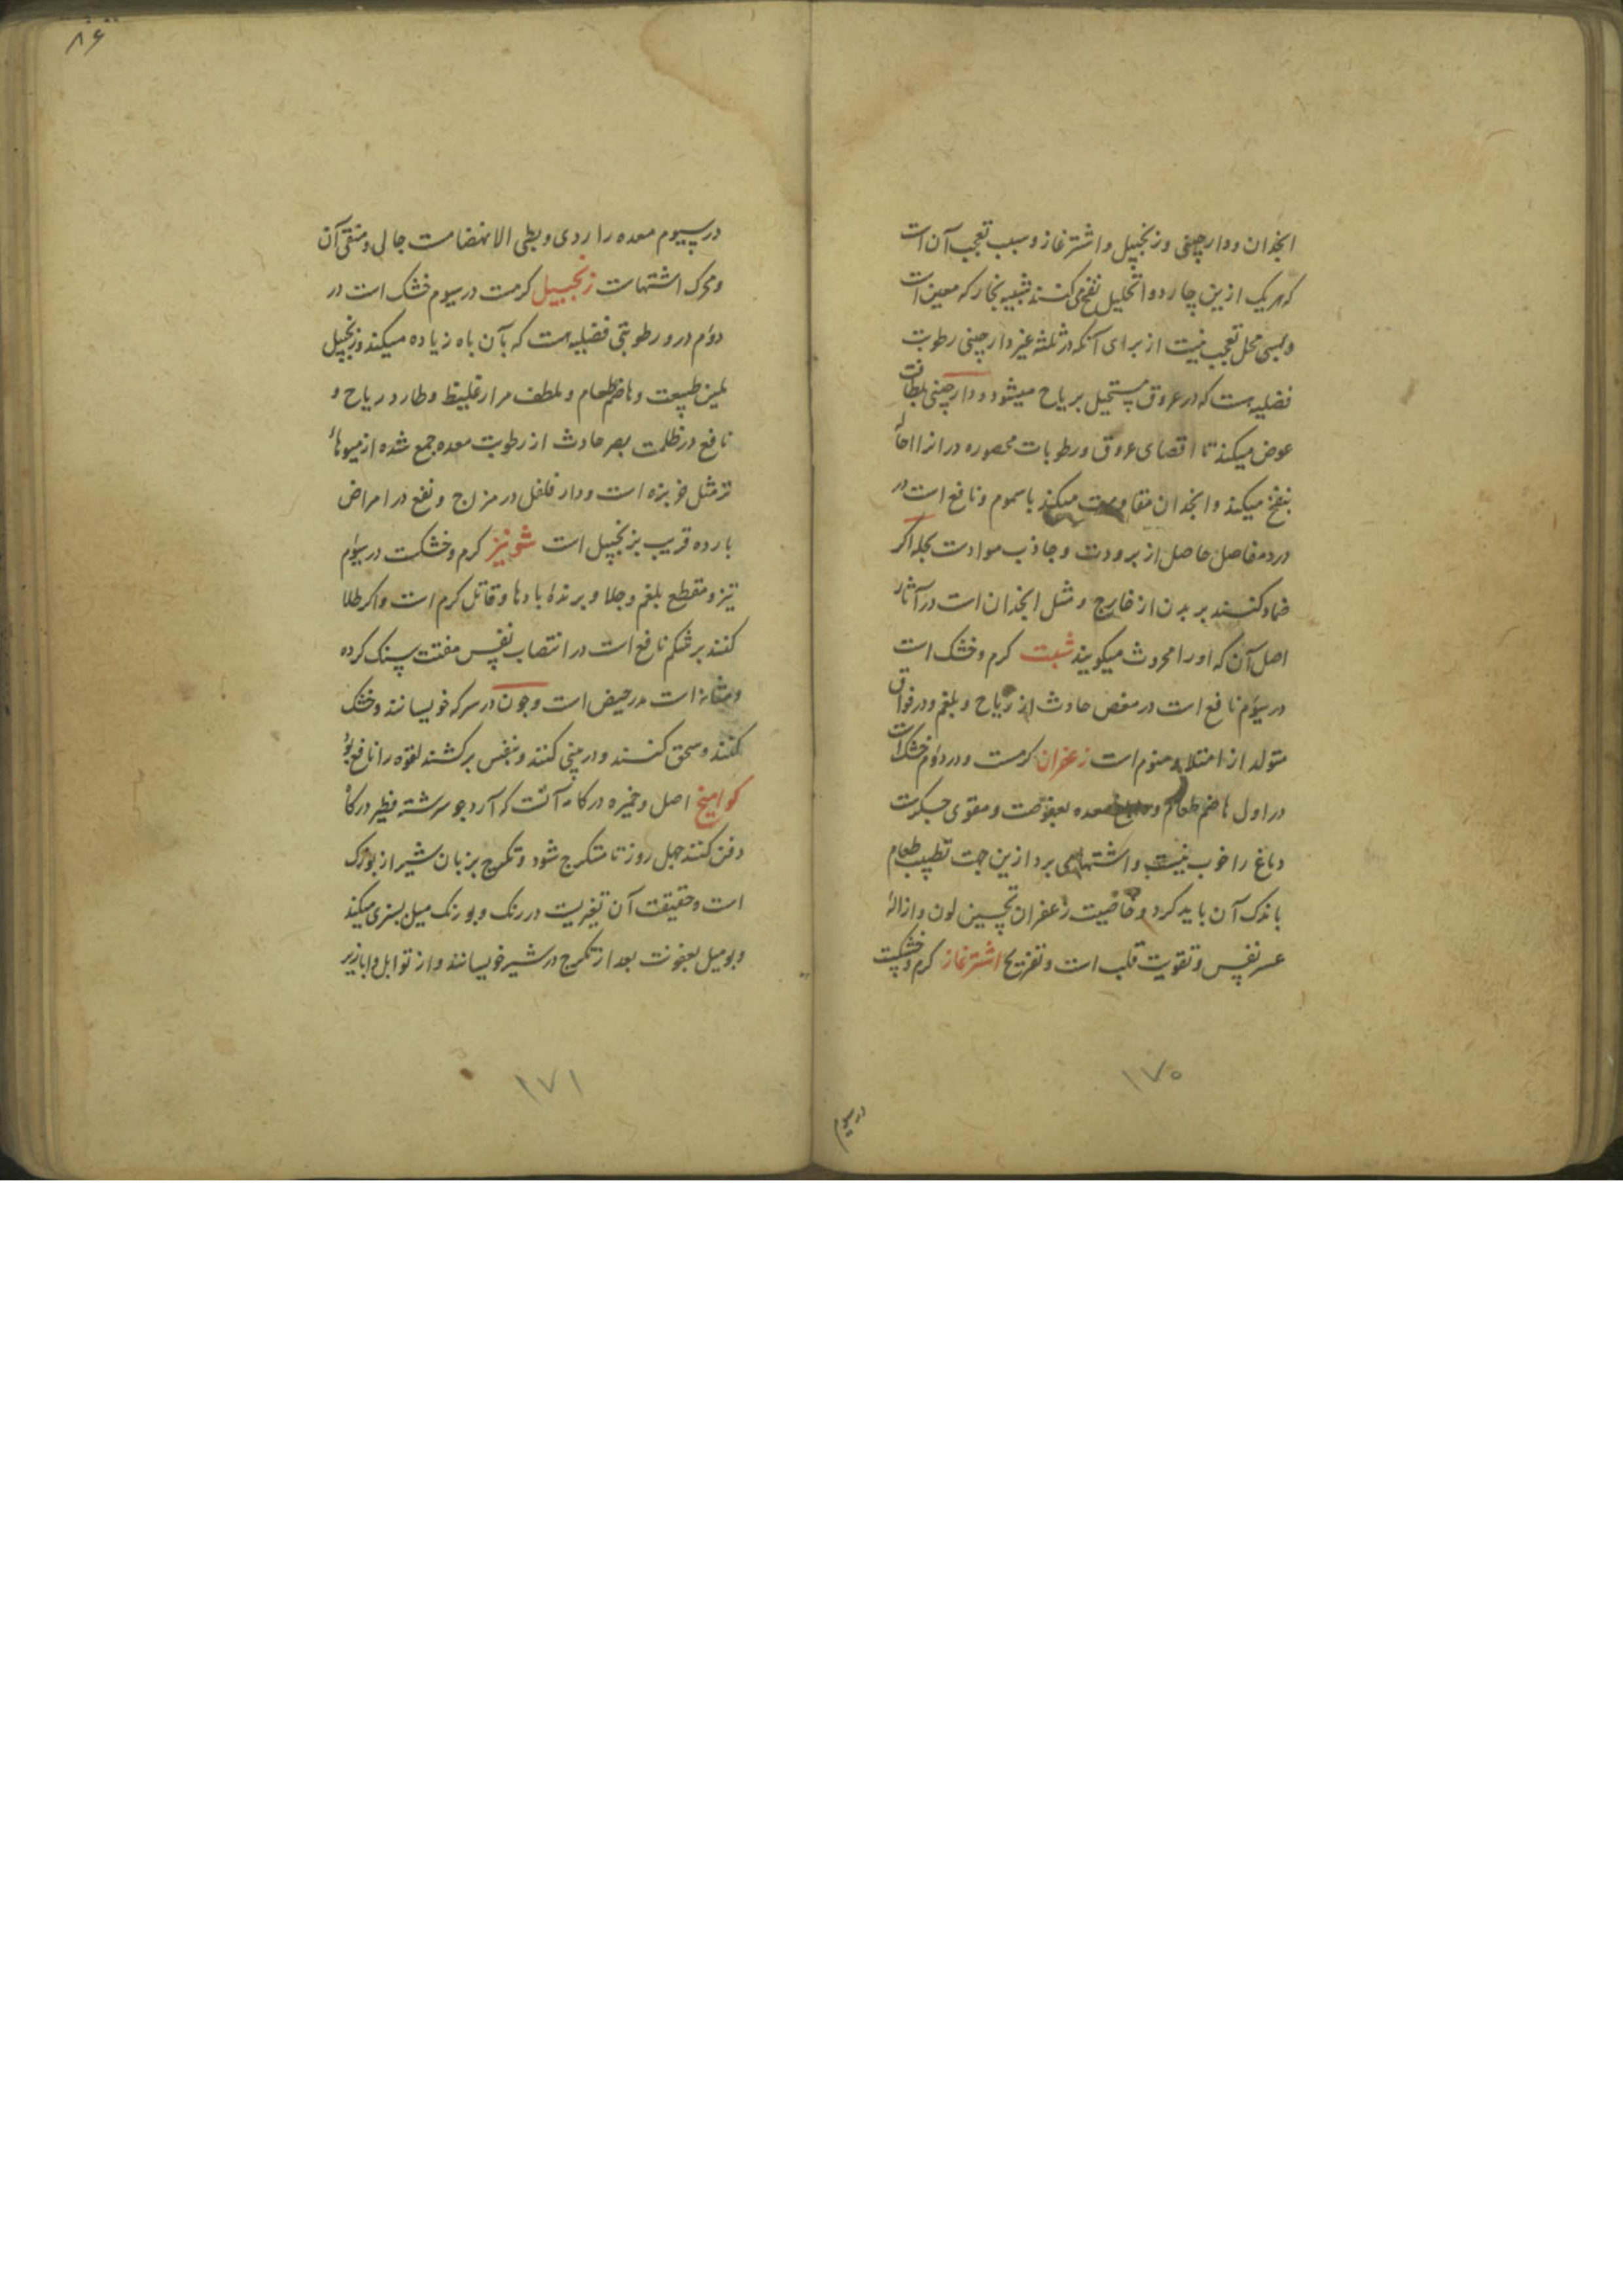 انجدان و دارچینی و زنجبیل و اشترغاز و سبب تعجب آن است
که هریک ازین چار دوا تحلیل نفخ می کنند شبیه بخار که معین است
و بسی محل تعجب نیست از برای آنکه در ثلثه غیر دارچینی رطوبت
فضلیه هست که در عروق مستحیل بریاح میشود و دارچینی بلطافت
عوض میکند تا اقصای عروق و رطوبات محصوره در انرا احالهٔ
بنفخ میکند و انجدان مقاومت میکند با سموم و نافع است در
درد مفاصل حاصل از برودت و جاذب موادست بجلد اکر
ضماد کنند بر بدن از خارج و مثل انجدان است در آثار
اصل آن که اورا محروث میکویند شبت کرم و خشک است
در سیوم نافع است در مغص حادث از ریاح و بلغم و در فواق
متولد از امتلا و منوم است زعفران کرمست و در دوم خشک است
در اول هاضم طعام و معده بعفوصت و مقوی جکرست
دماغ را خوب نیست و اشتها می برد ازین جهت تطییب طعام
باندک آن باید کرد و خاصیت زعفران تحسین لون و ازالهٔ
عسر نفس و تقویت قلب است و تفریح اشترغاز کرم و خشکست
۱۷۰
در سیوم
۸۶
در سیوم معده را ردی و بطی الانهضامست جالی و منقی آن
و محرک اشتهاست زنجبیل کرمست در سیوم خشک است در
دوم درو رطوبتی فضلیه هست که بآن باه زیاده میکند و زنجبیل
ملین طبیعت و هاضم طعام و ملطف مرار غلیظ و طارد ریاح و
نافع در ظلمت بصر حادث از رطوبت معده جمع شده از میوهاء
تر مثل خربزه است و دار فلفل در مزاج و نفع در امراض
بارده قریب بزنجبیل است شونیز کرم و خشکست در سیوم
تیز و مقطع بلغم و جلا و برندهٔ بادها و قاتل کرم است و اکر طلا
کنند بر شکم نافع است در انتصاب نفس مفتت سنک کرده
و مثانه است مدر حیض است و جون در سرکه خویسانند و خشک
کنند و سحق کنند و در بینی کنند و بنفس برکشند لقوه را نافع بود
کوامیخ اصل و خمیره در کامه آنست که آرد جو سرشته فطیر در کاه
دفن کنند چهل روز تا متکرج شود و تکرج بزبان شیراز بوزک
است و حقیقت آن تغیریست در رنک و بو رنک میل بسبزی میکند
و بو میل بعفونت بعد از تکرج در شیر خویسانند و از توابل و ابازیر
۱۷۱